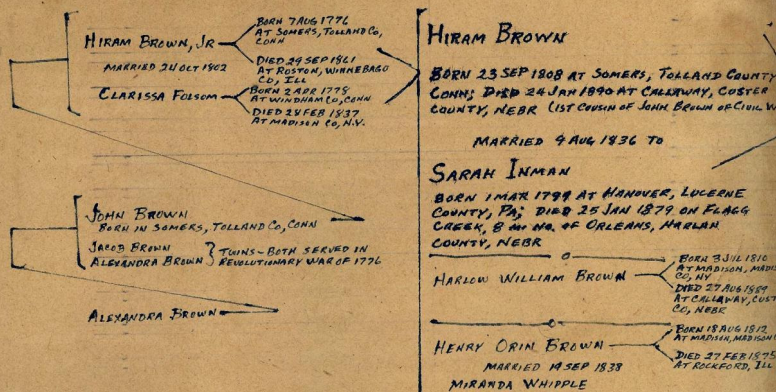 HIRAM BROWN, JR
BORN 7 AUG 1776
AT SOMERS, TOLLAND CO,
CONN
DIED 29 SEP 1861
AT ROSTON, WINNEBAGO
CO, ILL
MARRIED 24 OCT 1802
CLARISSA FOLSOM
BORN 2 APR 1778
AT WINDHAM CO, CONN
DIED 28 FEB 1837
AT MADISON CO, N.Y.
JOHN BROWN
BORN IN SOMERS, TOLLAND CO, CONN
JACOB BROWN
ALEXANDRA BROWN
TWINS - BOTH SERVED IN
REVOLUTIONARY WAR OF 1776
ALEXANDRA BROWN
HIRAM BROWN
BORN 23 SEP 1808 AT SOMERS, TOLLAND COUNTY
CONN; DIED 24 JAN 1890 AT CALLAWAY, CUSTER
COUNTY, NEBR (1ST COUSIN OF JOHN BROWN OF CIVIL W
MARRIED 4 AUG 1836 TO
SARAH INMAN
BORN 1 MAR 1799 AT HANOVER, LUCERNE
COUNTY, PA; DIED 25 JAN 1879 ON FLAGG
CREEK, 8 MI NO. OF ORLEANS, HARLAN
COUNTY, NEBR
HARLOW WILLIAM BROWN
BORN 3 JUL 1810
AT MADISON, MADIS
CO, NY
DIED 27 AUG 1889
AT CALLAWAY, CUST
CO, NEBR
HENRY ORIN BROWN
BORN 18 AUG 1812
AT MADISON, MADISON
DIED 27 FEB 1875
AT ROCKFORD, ILL
MARRIED 14 SEP 1838
MIRANDA WHIPPLE